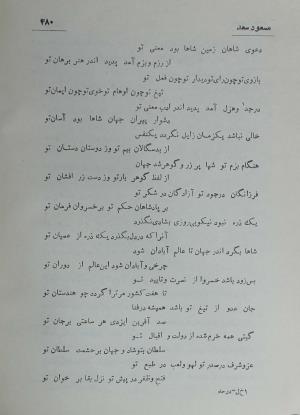 مسعود سعد
۴۸۰
دعوی شاهان زمین شاها بود معنی تو
از رزم و بزم آمد پدید اندر هنر برهان تو
بازوی تو چون رای تو دیدار تو چون فعل تو
تیغ تو چون اوهام تو خوی تو چون ایمان تو
در جد و هزل آمد پدید اندر ادب معنی تو
دشوار پیران جهان شاها بود آسان تو
خالی نباشد یکزمان زایل نگردد یکنفس
از بدسگالان بیم تو وز دوستان دستان تو
هنگام بزم تو شها پر زر و گوهر شد جهان
از لفظ گوهر بار تو وز دست زر افشان تو
فرزانگان در جود تو آزادگان در شکر تو
بر پادشاهان حکم تو بر خسروان فرمان تو
یک ذره نبود نیکویی روزی بشادی نگذرد
آنرا که در دل بگذرد یک ذره از عصیان تو
شاها بگرد اندر جهان تا عالم آبادان شود
چرخی و آبادان شود این عالم از دوران تو
بس زود باشد خسروا از نصرت و تایید تو
تا هفت کشور مر ترا گردد چو هندستان تو
جان عدو از تیغ تو باشد همیشه در فنا
صد آفرین ایزدی هر ساعتی بر جان تو
گیتی همه خرم شده از دولت و اقبال تو
سلطان بتو شاد و جهان بر حشمت سلطان تو
عز و شرف در صدر تو لهو و لعب در طبع تو
فتح و ظفر در پیش تو نزل بقا بر خوان تو